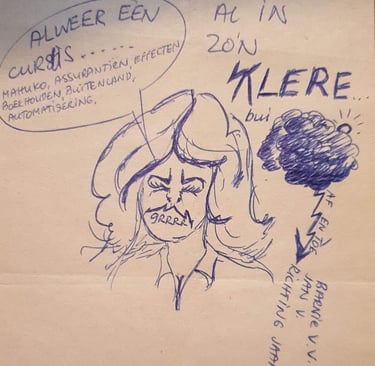 ALWEER EEN
CURSIS......
MAHUKO, ASSURANTIËN, EFFECTEN
BOEKHOUDEN, BUITENLAND,
AUTOMATISERING,
AL IN
ZO'N
KLERE...
bui
AF EN TOE
GRRRR
BARNIE V.V.
JAN V.
RICHTING JAAR